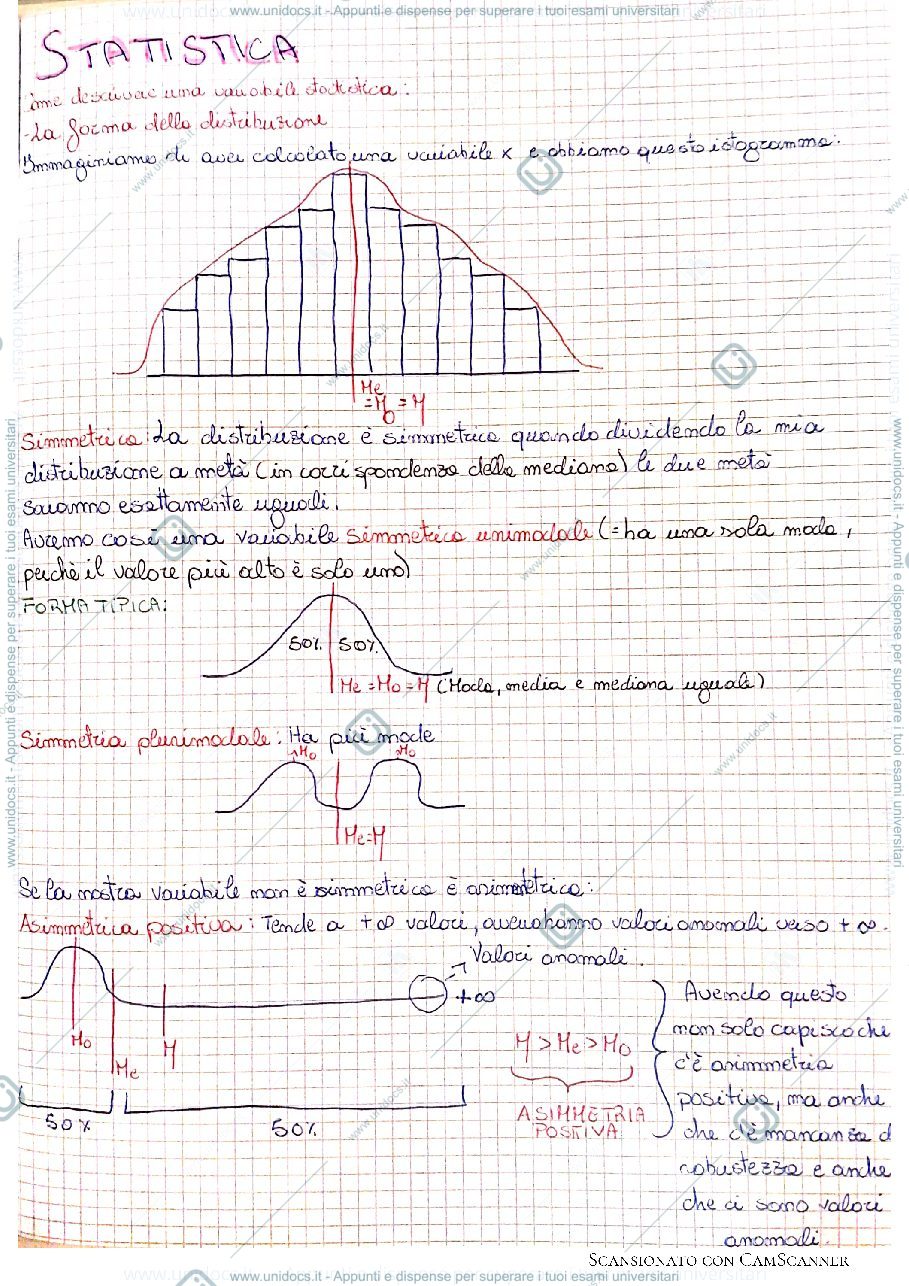 www.unidocs.it - Appunti e dispense per superare i tuoi esami universitari
STATISTICA
ome descrivere una variabile statistica:
-La forma della distribuzione
Immaginiamo di aver calcolato una variabile x e abbiamo questo istogramma:
Me
=Mo = M
Simmetrica: La distribuzione è simmetrica quando dividendo la mia
distribuzione a metà (in corrispondenza della mediana) le due metà
saranno esattamente uguali.
Avremo così una variabile simmetrica unimodale (=ha una sola moda,
perchè il valore più alto è solo uno)
FORMA TIPICA:
50% 50%
Me = Mo = M (Moda, media e mediana uguali)
Simmetria plurimodale: Ha più mode
Mo Mo
Me=M
Se la nostra variabile non è simmetrica è asimmetrica:
Asimmetrica positiva: Tende a +∞ valori, avranno valori anomali verso +∞.
Valori anomali.
+∞
Mo
Me
M
50%
50%
M > Me > Mo
ASIMMETRIA
POSTIVA
Avendo questo
non solo capisco che
c'è asimmetria
positiva, ma anche
che c'è mancanza d
robustezza e anche
che ci sono valori
anomali.
SCANSIONATO CON CAMSCANNER
www.unidocs.it - Appunti e dispense per superare i tuoi esami universitari
www.unidocs.it - Appunti e dispense per superare i tuoi esami universitari
www.unidocs.it - Appunti e dispense per superare i tuoi esami universitari